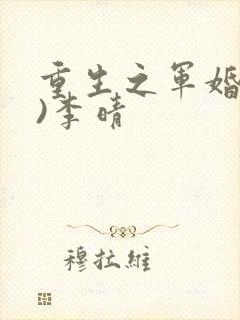 重生之军婚
)李晴
穆拉维